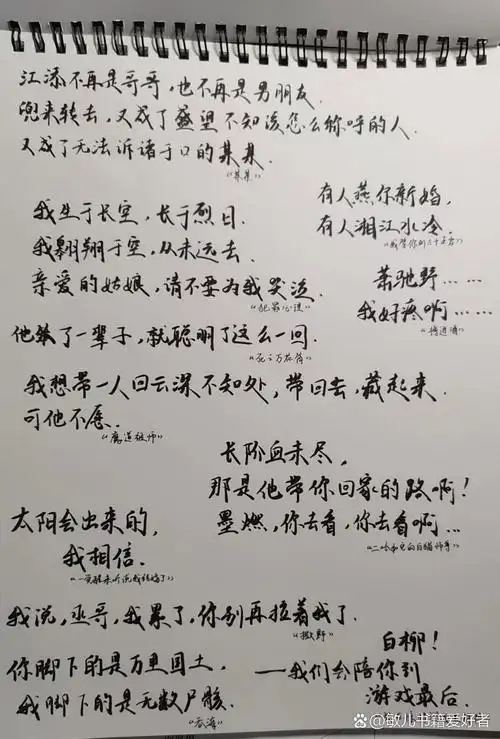 江添不再是哥哥，也不再是男朋友.
兜来转去，又成了盛望不知该怎么称呼的人.
又成了无法诉诸于口的某某.
《某某》
有人燕尔新婚，
有人湘江水冷.
我生于长空，长于烈日.
我翱翔于空，从未远去.
亲爱的姑娘，请不要为我哭泣.
萧驰野……
我好疼啊……
《将进酒》
他笨了一辈子，就聪明了这么一回.
《死亡万花筒》
我想带一人回云深不知处，带回去，藏起来.
可他不愿.
《魔道祖师》
长阶血未尽，
那是他带你回家的路啊！
墨燃，你去看，你去看啊…
《二哈和他的白猫师尊》
太阳会出来的，
我相信.
《一觉醒来听说我结婚了》
我说，丞哥，我累了，你别再拉着我了.
《撒野》
白柳！
——我们会陪你到
游戏最后.
你脚下的是万里国土，
我脚下的是无数尸骸.
《吞海》
@敏儿书籍爱好者